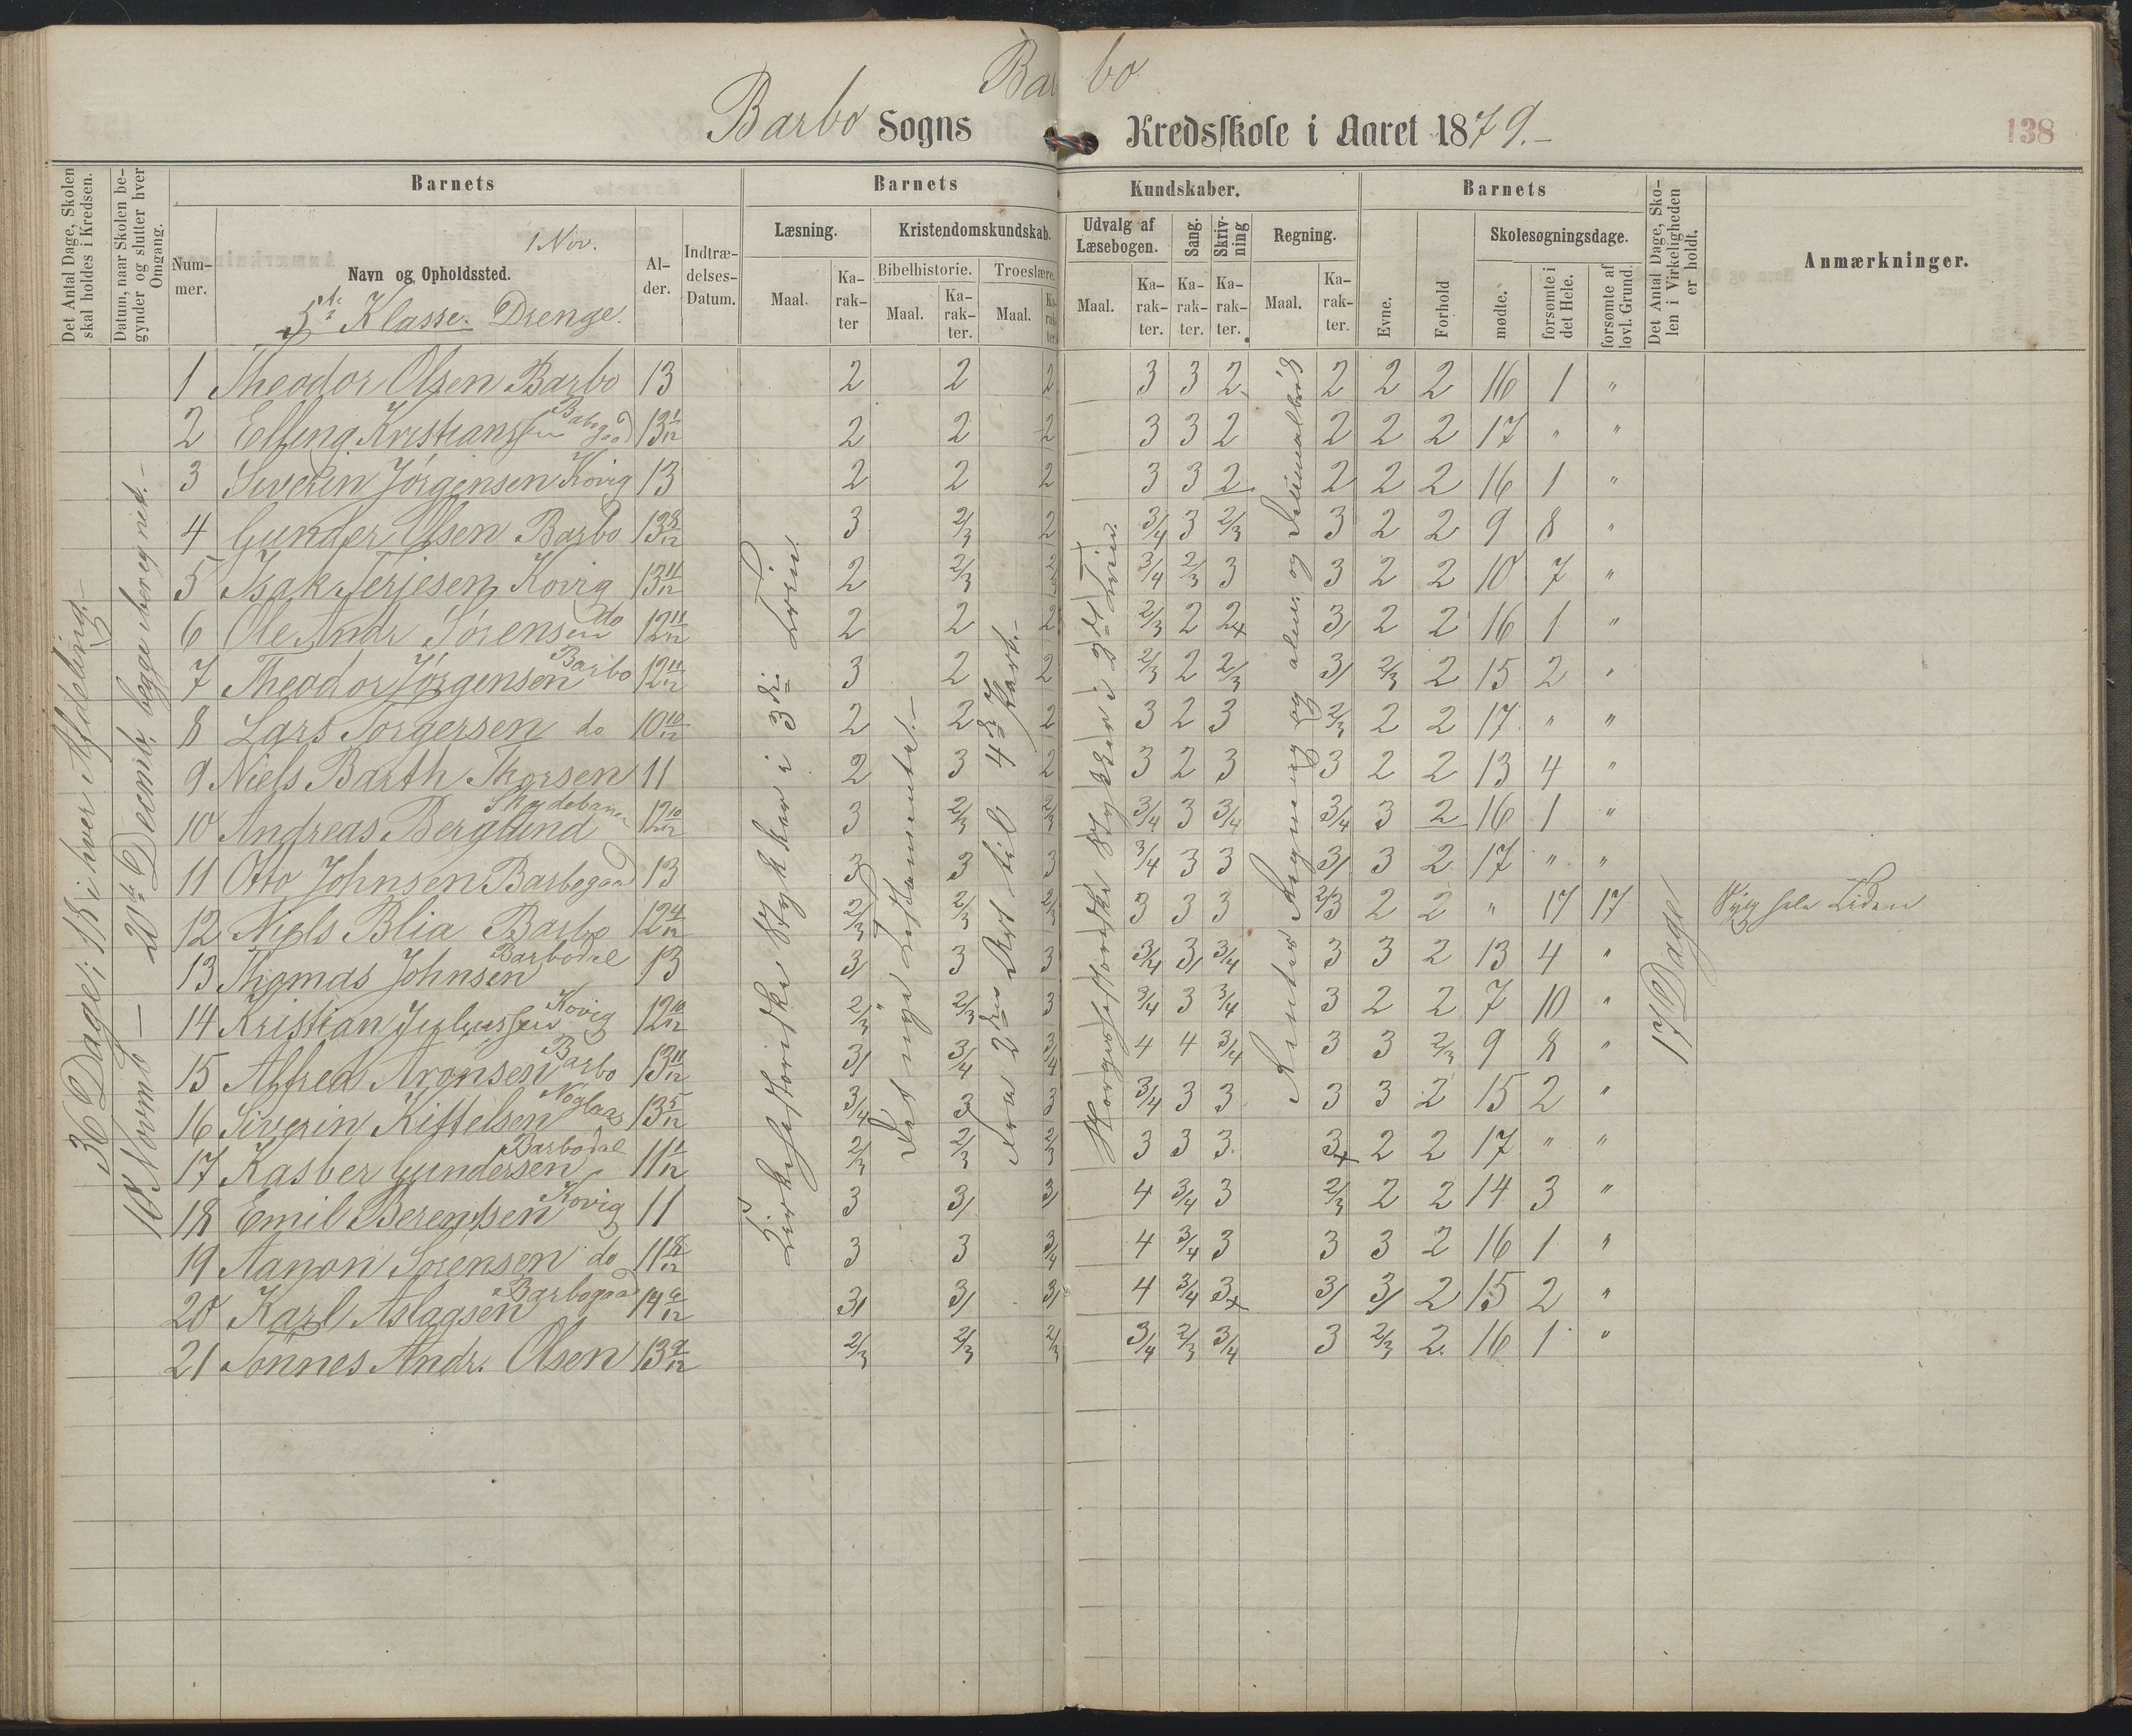 Barbo
Barbo Sogns Kredsskole i Aaret 1879.-
138
Det Antal Dage, Skolen skal holdes i Kredsen.
Datum, naar Skolen begynder og slutter hver Omgang.
Barnets
Barnets
Kundskaber.
Barnets
Det Antal Dage, Skolen i Virkeligheden er holdt.
Anmærkninger.
Nummer.
1 Nov.
Navn og Opholdssted.
5te Klasse. Drenge.
Alder.
Indtrædelses-Datum.
Læsning.
Maal.
Karakter
Kristendomskundskab.
Bibelhistorie.
Maal.
Karakter.
Troeslære.
Maal.
Karakter
Udvalg af Læsebogen.
Maal.
Karakter.
Sang.
Karakter.
Skrivning
Karakter.
Regning.
Maal.
Karakter.
Evne.
Forhold
Skolesøgningsdage.
mødte.
forsømte i det Hele.
forsømte af lovl. Grund.
36 Dage; 18 i hver Afdeling.-
10de Novemb — 20de Decemb, begge iberegnet.-
Kirkehistoriske Stykker i 3die Trin
Det nye Testamente.-
Fra 2den Art til 4de Part.-
Norgeshistoriske Stykker i 3die Trin.
Renter Regning og alm. og Decimalbrøk
17 Dage
1 Theodor Olsen Barbo 13 2 2 2 3 3 2 2 2 2 16 1 "
2 Elling Kristiansen Barbogaad 13 1/12 2 2 2 3 3 2 2 2 2 17 " "
3 Siverin Jörgensen Kovig 13 2 2 2 3 3 2 2 2 2 16 1 "
4 Gunder Olsen Barbo 13 8/12 3 2/3 2 3/4 3 2/3 3 2 2 9 8 "
5 Isak Terjesen Kovig 13 11/12 2 2/3 2/3 3/4 2/3 3 3 2 2 10 7 "
6 Ole Andr Sörensen do 12 11/12 2 2 2 2/3 2 2+ 3/ 2 2 16 1 "
7 Theodor Jörgensen Barbo 12 11/12 3 2 2 2/3 2 2/3 3/ 2/3 2 15 2 "
8 Lars Torgersen do 10 10/12 2 2 2 3 2 3 2/3 2 2 17 " "
9 Niels Barth Thorsen 11 2 3 2 3 2 3 3 2 2 13 4 "
10 Andreas Berglund Skydebanen 12 10/12 3 2/3 2/3 3/4 3 3/4 3/4 3 2 16 1 "
11 Otto Johnsen Barbogaad 13 3 3 3 3/4 3 3 3/ 3 2 17 " "
12 Niels Blia Barbo 12 4/12 2/3 2/3 2/3 3 3 3 2/3 2 2 " 17 17 Syg hele Tiden
13 Thomas Johnsen Barbodal 13 3/ 3 3 3/4 3/ 3/4 3 3 2 13 4 "
14 Kristian Juliussen Kovig 12 10/12 2/3 2/3 3 3/4 3 3/4 3 2 2 7 10 "
15 Alfred Aronsen Barbo 13 11/12 3/ 3/4 3/4 4 4 3/4 3 3 2/3 9 8 "
16 Siverin Kittelsen 13 5/12 3/4 3 3 3/4 3 3 3 3 2 15 2 "
17 Kasber Gundersen Barbodal 11 1/12 2/3 2/3 2/3 3 3 3 3+ 2 2 17 " "
18 Emil Berentsen Kovig 11 3 3/ 3/ 4 3/4 3 2/3 2 2 14 3 "
19 Aanon Sørensen do 11 8/12 3 3 3/4 4 3/4 3 3 3 2 16 1 "
20 Karl Aslagsen Barbogaad 14 9/12 3/ 3/ 3/ 4 3/4 3+ 3/ 3/ 2 15 2 "
21 Tönnes Andr. Olsen 13 9/12 2/3 2/3 2/3 3/4 2/3 3/4 3 2/3 2 16 1 "